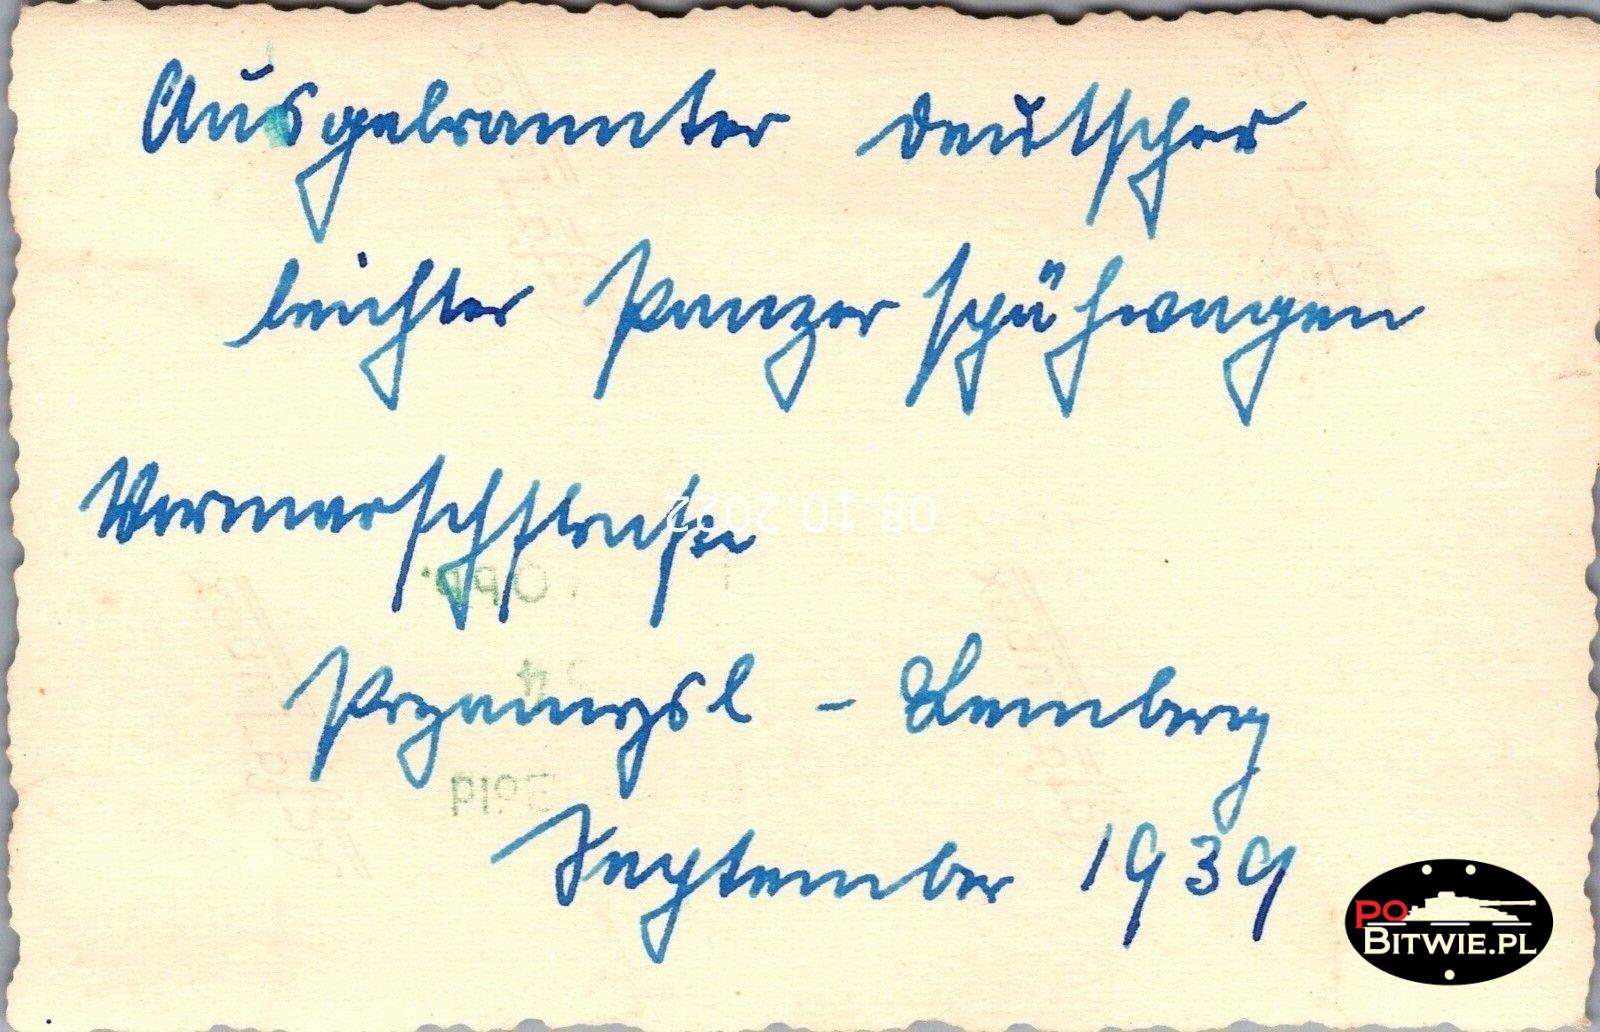 Ausgebrannter deutscher
leichter Panzerspähwagen
Vormarschstraße
08.10.2022
Opp.
Przemysl – Lemberg
September 1939
PO
BITWIE.PL